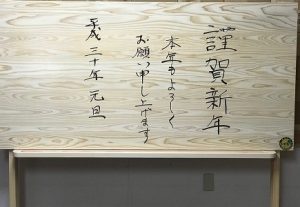 謹賀新年
本年もよろしく
お願い申し上げます
平成三十年 元旦